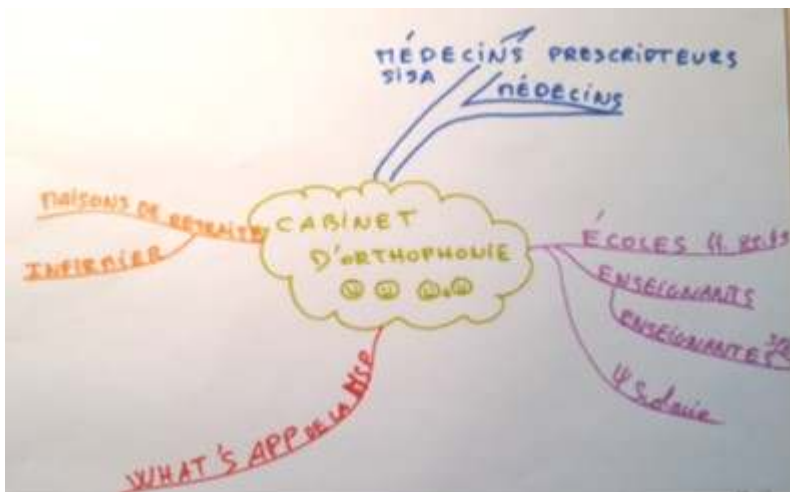 MÉDECINS PRESCRIPTEURS
SISA
MÉDECINS
MAISONS DE RETRAITE
INFIRMIER
CABINET
D'ORTHOPHONIE
ÉCOLES
ENSEIGNANTS
ENSEIGNANTES
WHAT'S APP DE LA MSP